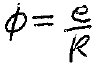 ϕ = e/R